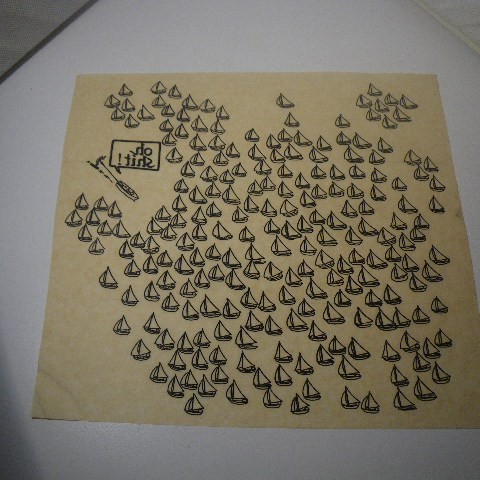 oh
shit!